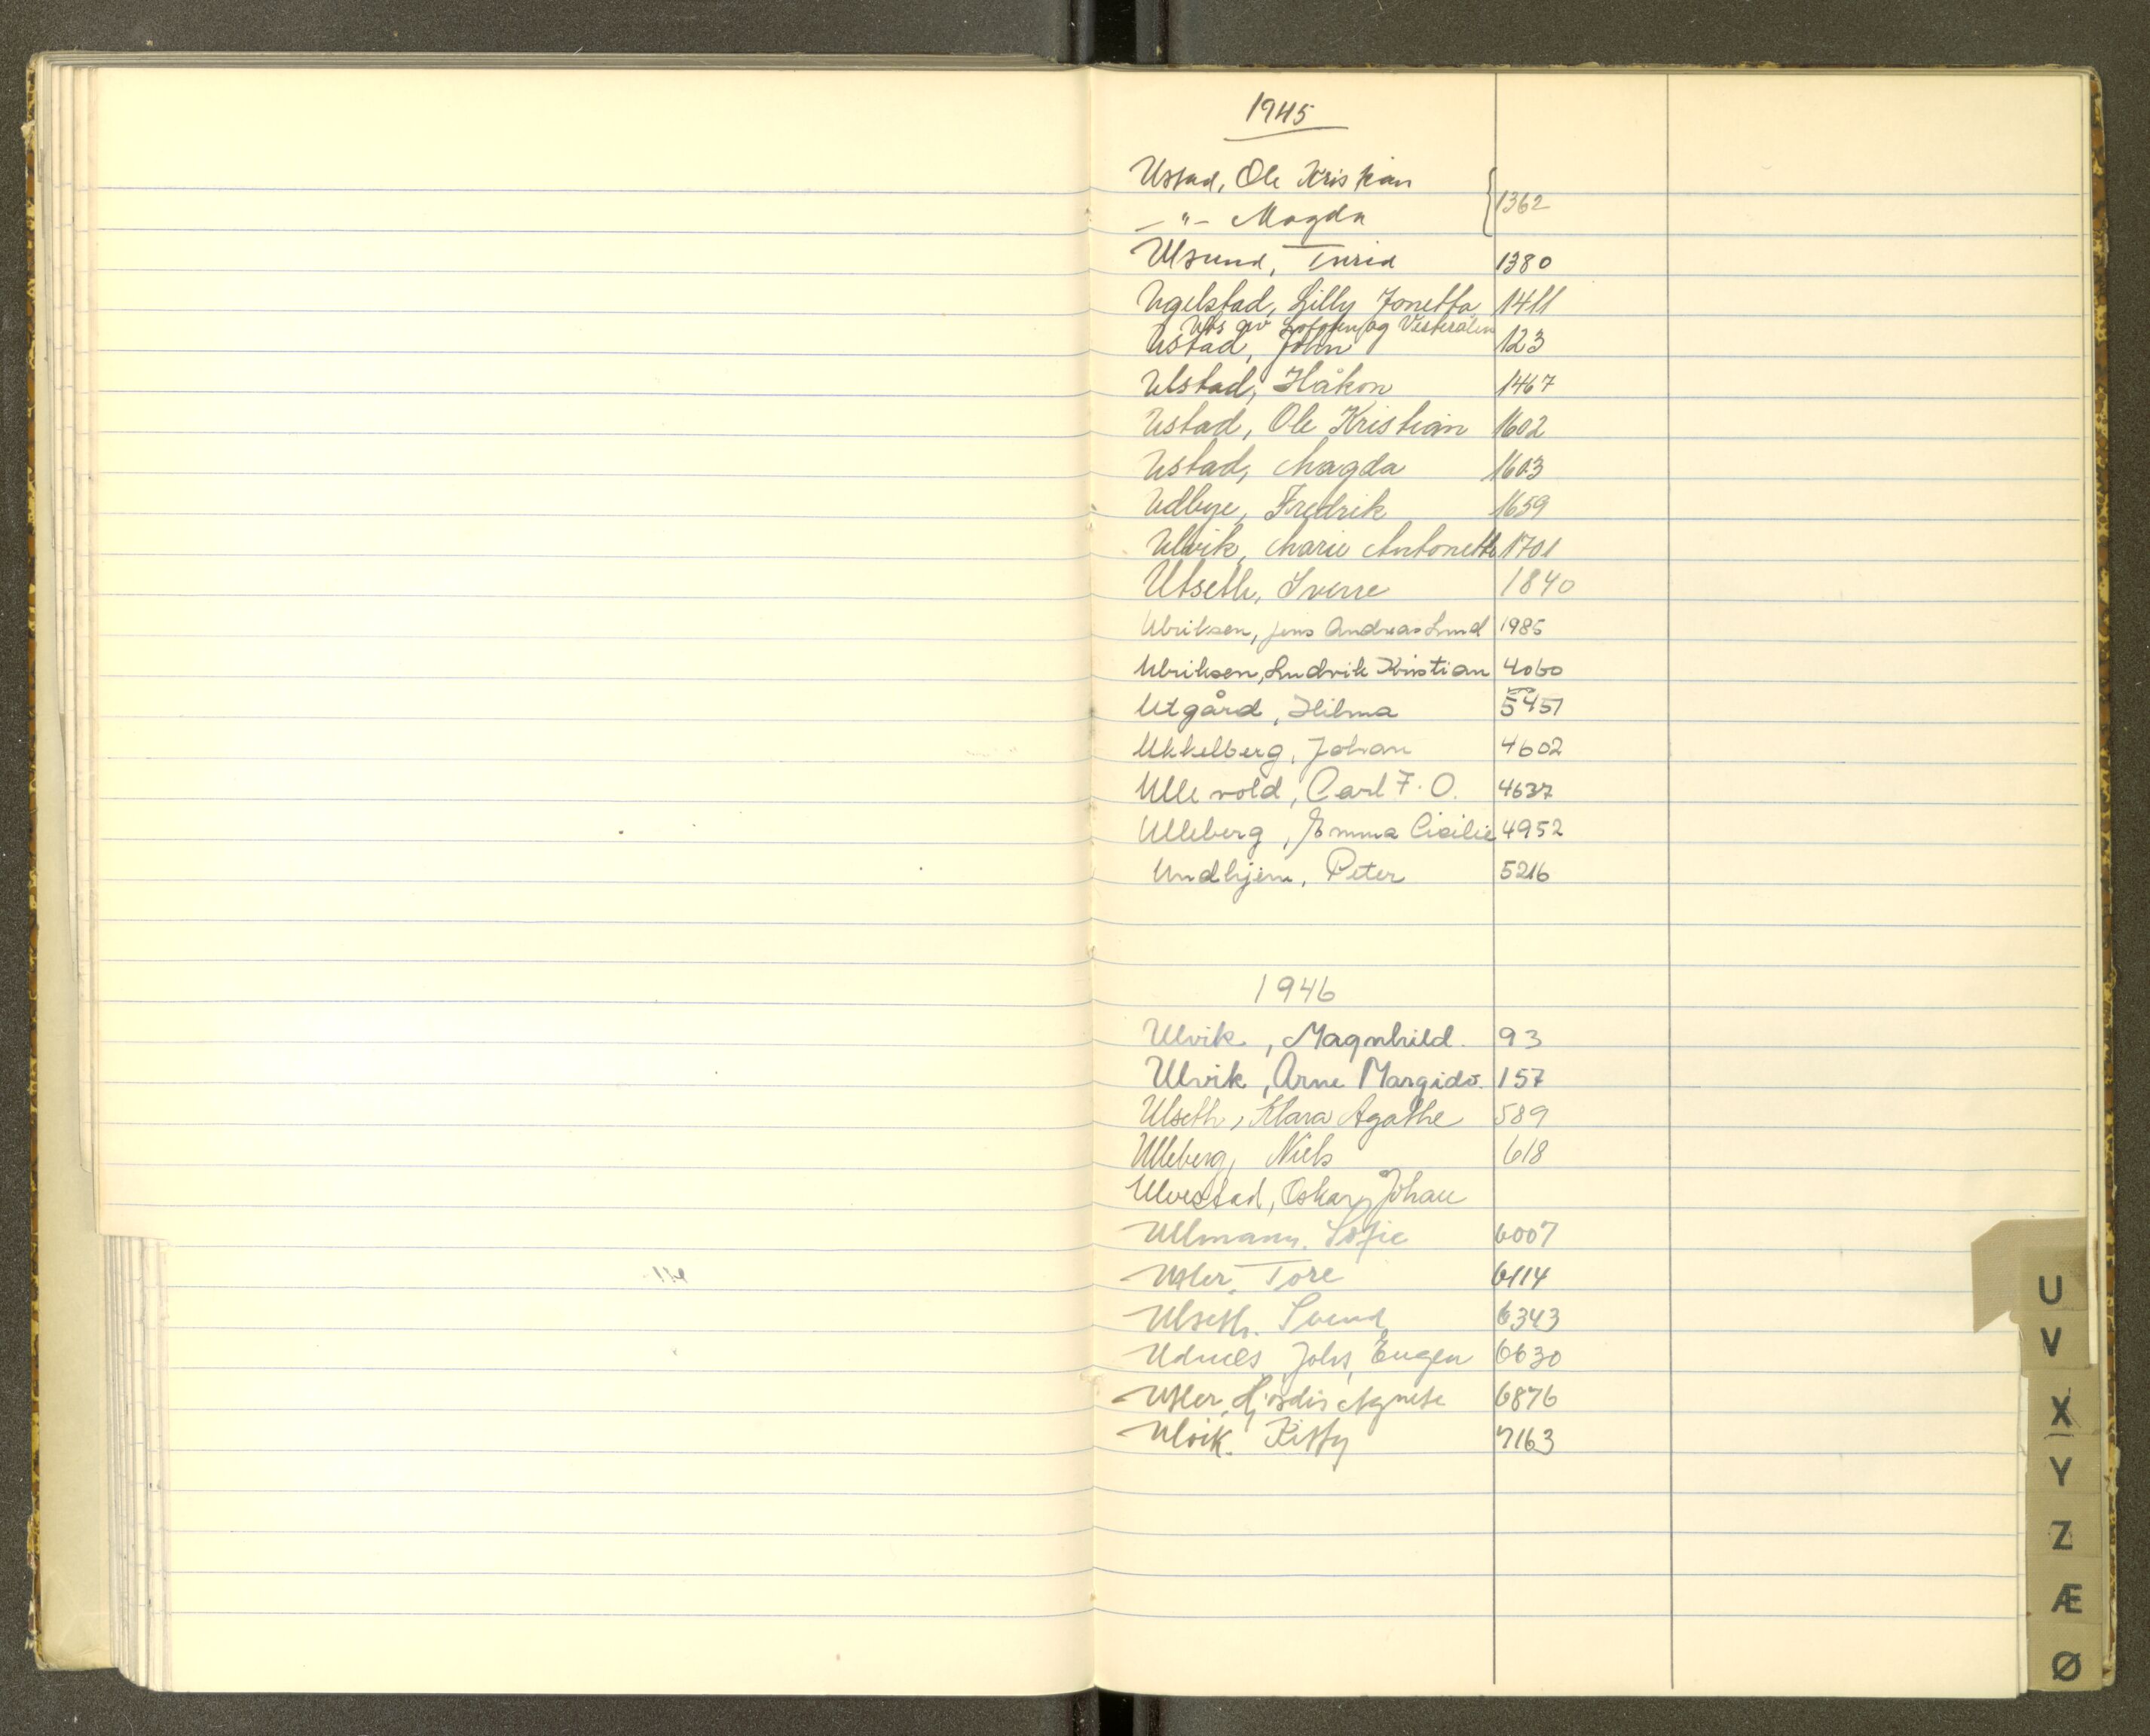 1945
Ustad, Ole Kristian
{1362
— " — Magda
Ulsund, Turid 1380
Ugelstad, Lilly Jonetta 1411
Utb av Lofoten og Vesterålen
Ustad, John 123
Ulstad, Håkon 1467
Ustad, Ole Kristian 1602
Ustad, Magda 1603
Udbye, Fredrik 1659
Ulvik, Marie Antonette 1701
Utseth, Sverre 1840
Ulriksen, Jens Andreas Lund 1985
Ulriksen, Ludvik Kristian 4060
Utgård, Hilma 5451
Ukkelberg, Johan 4602
Ullevold, Carl F. O. 4637
Ulleberg, Emma Cicilie 4952
Undhjem, Peter 5216
1946
Ulvik, Magnhild. 93
Ulvik, Arne Margido. 157
Ulseth, Klara Agathe 589
Ulleberg, Niels 618
Ulvestad, Oskar Johan
Ullmann. Sofie 6007
Utler, Tore 6114
Ulseth. Svend 6343
Udnæs, Johs, Eugen 6630
Utler, Hjördis Agnete 6876
Ulvik. Kitty 7163
U
V
X
Y
Z
Æ
Ø